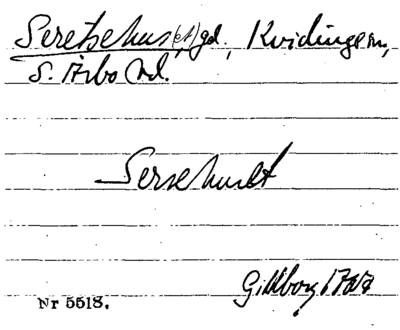 Seretsehus(et), gd, Kvidinge sn,
S. Åsbo hd.
Sersehuslt
Gillberg 1767
Nr 5518.